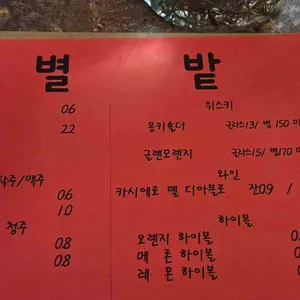 별 밭
0.6
2.2
탁주/맥주
0.6
1.0
청주
0.8
0.8
위스키
몽키숄더 글라스13/ 병 150
글렌모렌지 글라스15/ 병170
와인
카시에로 델 디아블로 잔0.9 /
하이볼
오렌지 하이볼
메 론 하이볼
레 몬 하이볼